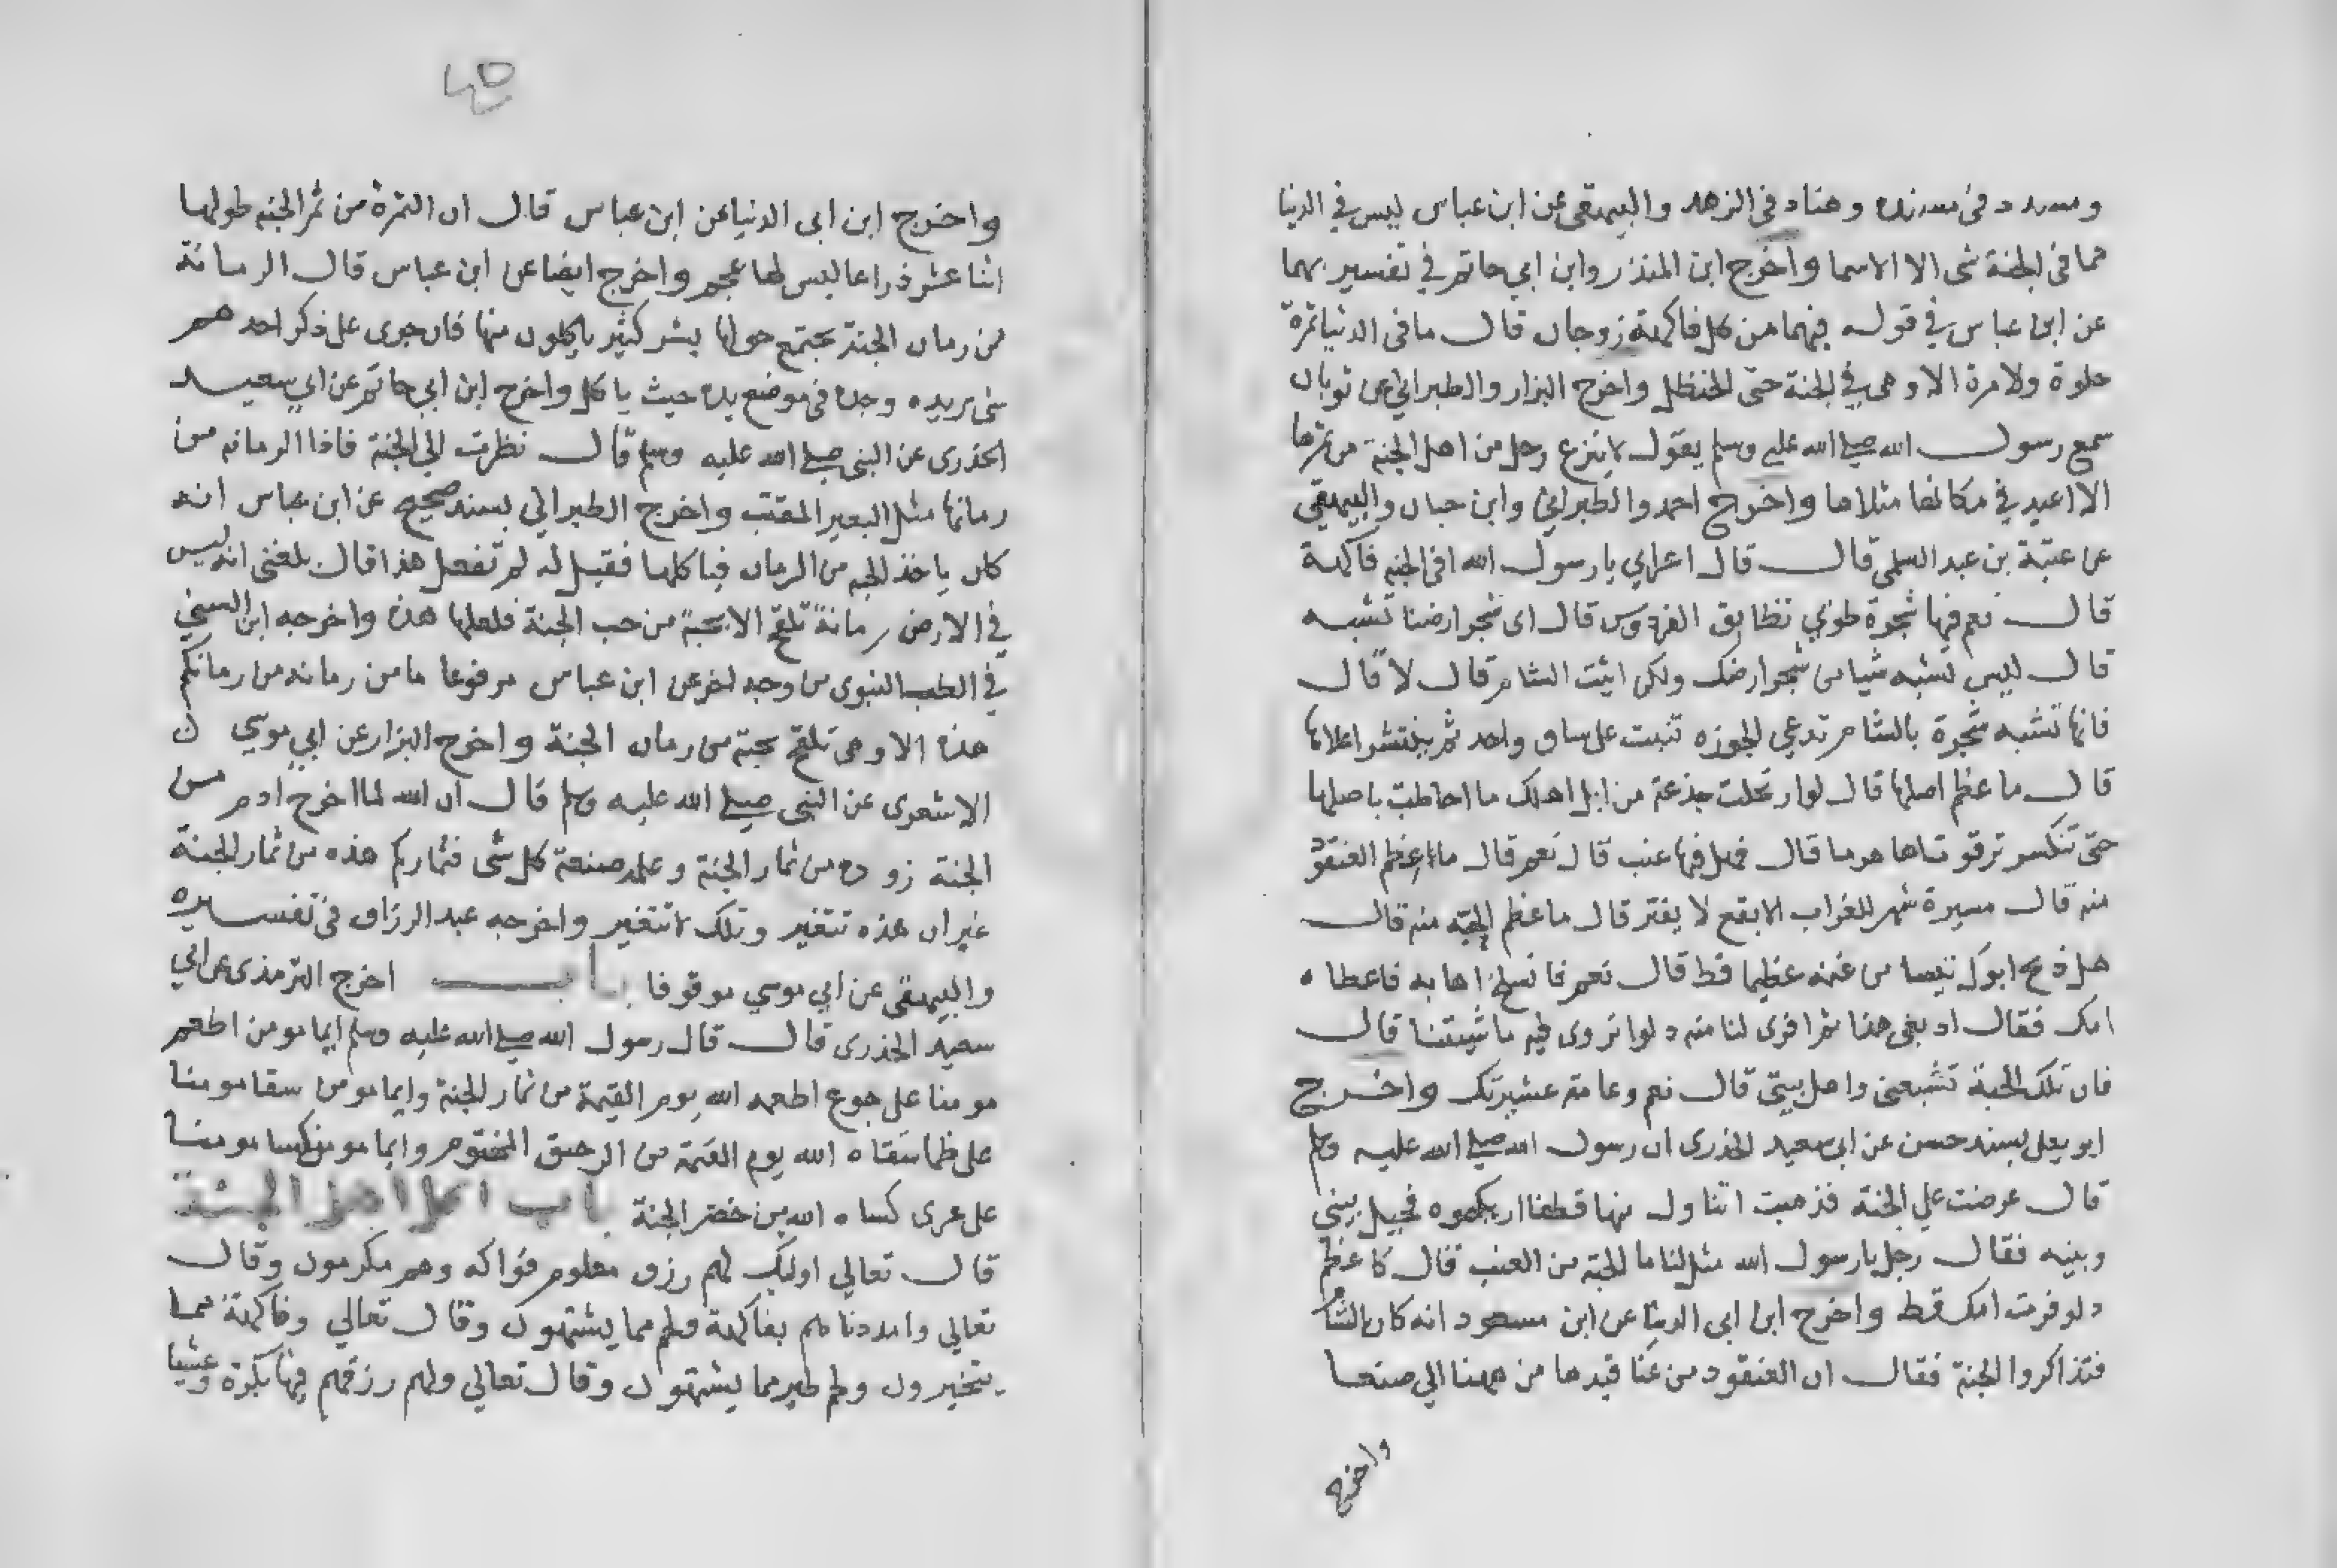 ومسدد في مسنده وهناد في الزهد والبيهقي عن ابن عباس ليس في الدنيا
مما في الجنة شى الا الاسما واخرج ابن المنذر وابن ابي حاتم في تفسيريهما
عن ابن عباس في قوله فيهما من كل فاكهة زوجان قال ما في الدنيا ثمرة
حلوة ولا مرة الا وهى في الجنة حتى الحنظل واخرج البزار والطبراني عن ثوبان
سمع رسول الله صلى الله عليه وسلم يقول لا ينزع رجل من اهل الجنة من ثمرها
الا اعيد في مكانها مثلاها واخرج احمد والطبراني وابن حبان والبيهقي
عن عتبة بن عبد السلمي قال قال اعرابي يا رسول الله افي الجنة فاكهة
قال نعم فيها شجرة طوبي تطابق الفردوس قال اى شجر ارضنا تشبه
قال ليس تشبه شيا من شجر ارضك ولكن ائيت الشام قال لا قال
فانها تشبه شجرة بالشام تدعي الجوزه تنبت على ساق واحد ثم ينتشر اعلاها
قال ما عظم اصلها قال لو ارتحلت جذعة من ابل اهلك ما احاطت باصلها
حتى تنكسر ترقوتاها هرما قال فهل فيها عنب قال نعم قال ما عظم العنقود
منه قال مسيرة شهر للغراب الابقع لا يفتر قال ما عظم الحبه منه قال
هل ذبح ابوك تيسا من غنمه عظيما قط قال نعم فانسلخ اهابه فاعطاه
امك فقال ادبغى هذا ثم افرى لنا منه دلوا نروى فيه ماشيتنا قال
فان تلك الحبة تشبعني واهل بيتى قال نعم وعامة عشيرتك واخرج
ابو يعلى بسند حسن عن ابى سعيد الخدرى ان رسول الله صلى الله عليه وسلم
قال عرضت علي الجنة فذهبت اتناول منها قطفا اريكموه فحيل بيني
وبينه فقال رجل يا رسول الله مثل لنا ما الحبة من العنب قال كاعظم
دلو فرت امك قط واخرج ابن ابى الدنيا عن ابن مسعود انه كان بالشام
فتذاكروا الجنة فقال ان العنقود من عنا قيدها من ههنا الي صنعا
واخرج
واخرج ابن ابى الدنيا عن ابن عباس قال ان التمرة من تمر الجنه طولها
اثنا عشر ذراعا ليس لها عجم واخرج ايضا عن ابن عباس قال الرمانة
من رمان الجنة يجتمع حولها بشر كثير ياكلون منها فان جرى على ذكر احدهم
شى يريده وجده في موضع يده حيث ياكل واخرج ابن ابي حاتم عن ابي سعيد
الخدرى عن النبى صلى الله عليه وسلم قال نظرت الي الجنة فاذا الرمانه من
رمانها مثل البعير المقتب واخرج الطبراني بسند صحيح عن ابن عباس انه
كان ياخذ الحبه من الرمان فياكلها فقيل له لم تفعل هذا قال بلغنى انه ليس
في الارض رمانة تلقح الا بحبة من حب الجنة فلعلها هذه واخرجه ابن السني
في الطب النبوى من وجه اخر عن ابن عباس مرفوعا ما من رمانه من رمانكم
هذه الا وهى تلقح بحبة من رمان الجنة واخرج البزار عن ابي موسي
الاشعرى عن النبى صلى الله عليه وسلم قال ان الله لما اخرج ادم من
الجنة زوده من ثمار الجنة وعلمه صنعة كل شى فثماركم هذه من ثمار الجنة
غير ان هذه تتغير وتلك لا تتغير واخرجه عبد الرزاق في تفسيره
والبيهقي عن ابي موسي موقوفا باب اخرج الترمذى عن ابي
سعيد الخدرى قال قال رسول الله صلى الله عليه وسلم ايما مومن اطعم
مومنا على جوع اطعمه الله يوم القيمة من ثمار الجنة وايما مومن سقا مومنا
على ظما سقاه الله يوم القيمة من الرحيق المختوم وايما مومن كسا مومنا
على عرى كساه الله من خضر الجنة باب اكل اهل الجنة
قال تعالي اوليك لهم رزق معلوم فواكه وهم مكرمون وقال
تعالي وامددناهم بفاكهة ولحم مما يشتهون وقال تعالي وفاكهة مما
يتخيرون ولحم طير مما يشتهون وقال تعالي ولهم رزقهم فيها بكرة وعشيا